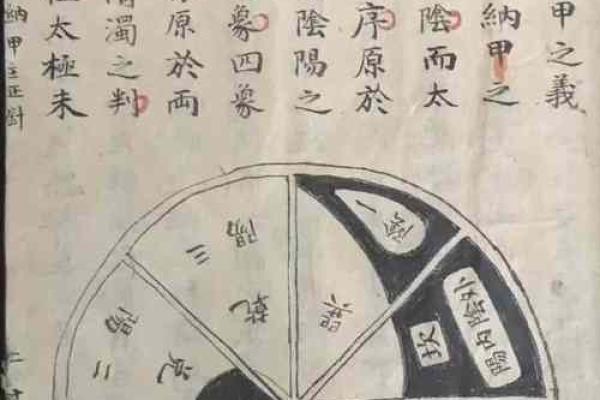 甲之義
納甲之
陰而太
序原於
陰陽之
象四象
原於両
濁之判
太極未
納甲
二陽
兌
三陽
乾
一陰
巽
外陰内陽
坎